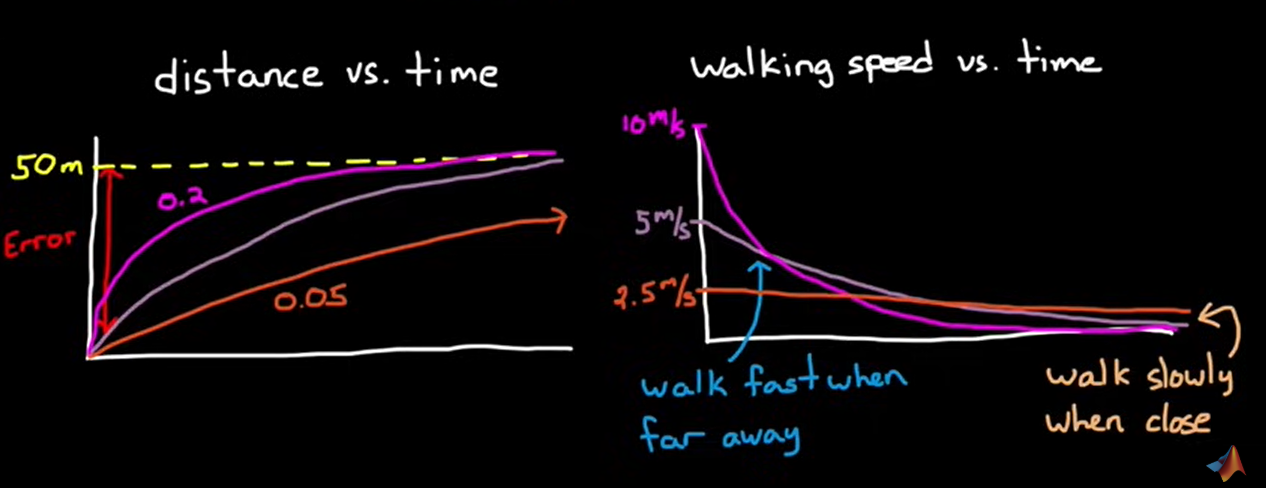 distance vs. time
50m
0.2
Error
0.05
walking speed vs. time
10m/s
5m/s
2.5m/s
walk fast when
far away
walk slowly
when close